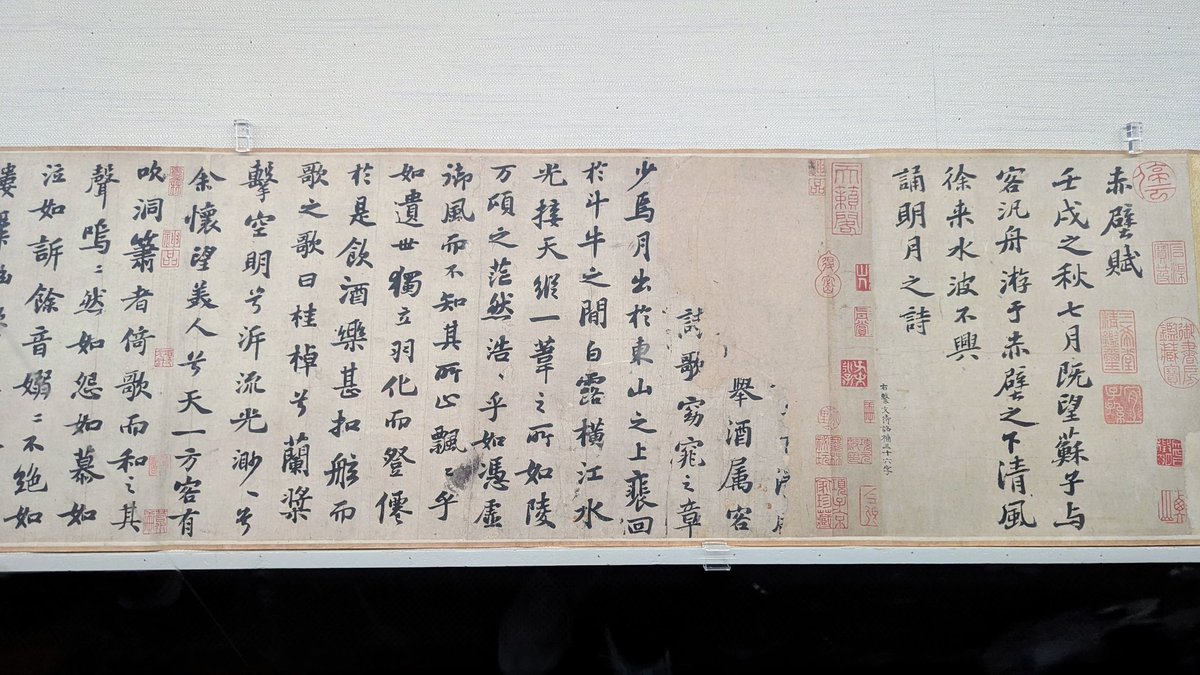 御書房鑑藏寶
三希堂精鑑璽
宜子孫
赤壁賦
壬戌之秋七月既望蘇子与
客汎舟游于赤壁之下清風
徐来水波不興
誦明月之詩
右繫文待詔補三十六字
天籟閣
項子京家珍藏
舉酒属客
詩歌窈窕之章
少焉月出於東山之上裵回
於斗牛之間白露橫江水
光接天縱一葦之所如陵
万頃之茫然浩〻乎如馮虛
御風而不知其所止飄〻乎
如遺世獨立羽化而登僊
於是飲酒樂甚扣舷而
歌之歌曰桂棹兮蘭槳
擊空明兮泝流光渺〻兮
余懷望美人兮天一方客有
神品
吹洞簫者倚歌而和之其
聲嗚〻然如怨如慕如
泣如訴餘音嫋〻不絶如